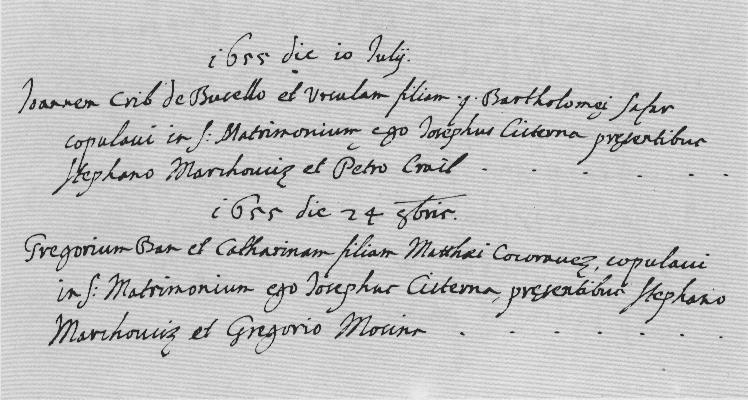 1655 die 10 Julij.
Joannem Crib de Bucello et Ursulam filiam .q. Bartholomęi Safar
copulavi in S: Matrimonium ego Josephus Cisterna pręsentibus
Stephano Marchoviz et Petro Crail . . . . . .
1655 die 24 9bris.
Gregorium Ban et Catharinam filiam Matthæi Cocoravez, copulavi
in S: Matrimonium ego Josephus Cisterna, pręsentibus Stephano
Marchoviz et Gregorio Mocins . . . . . . .